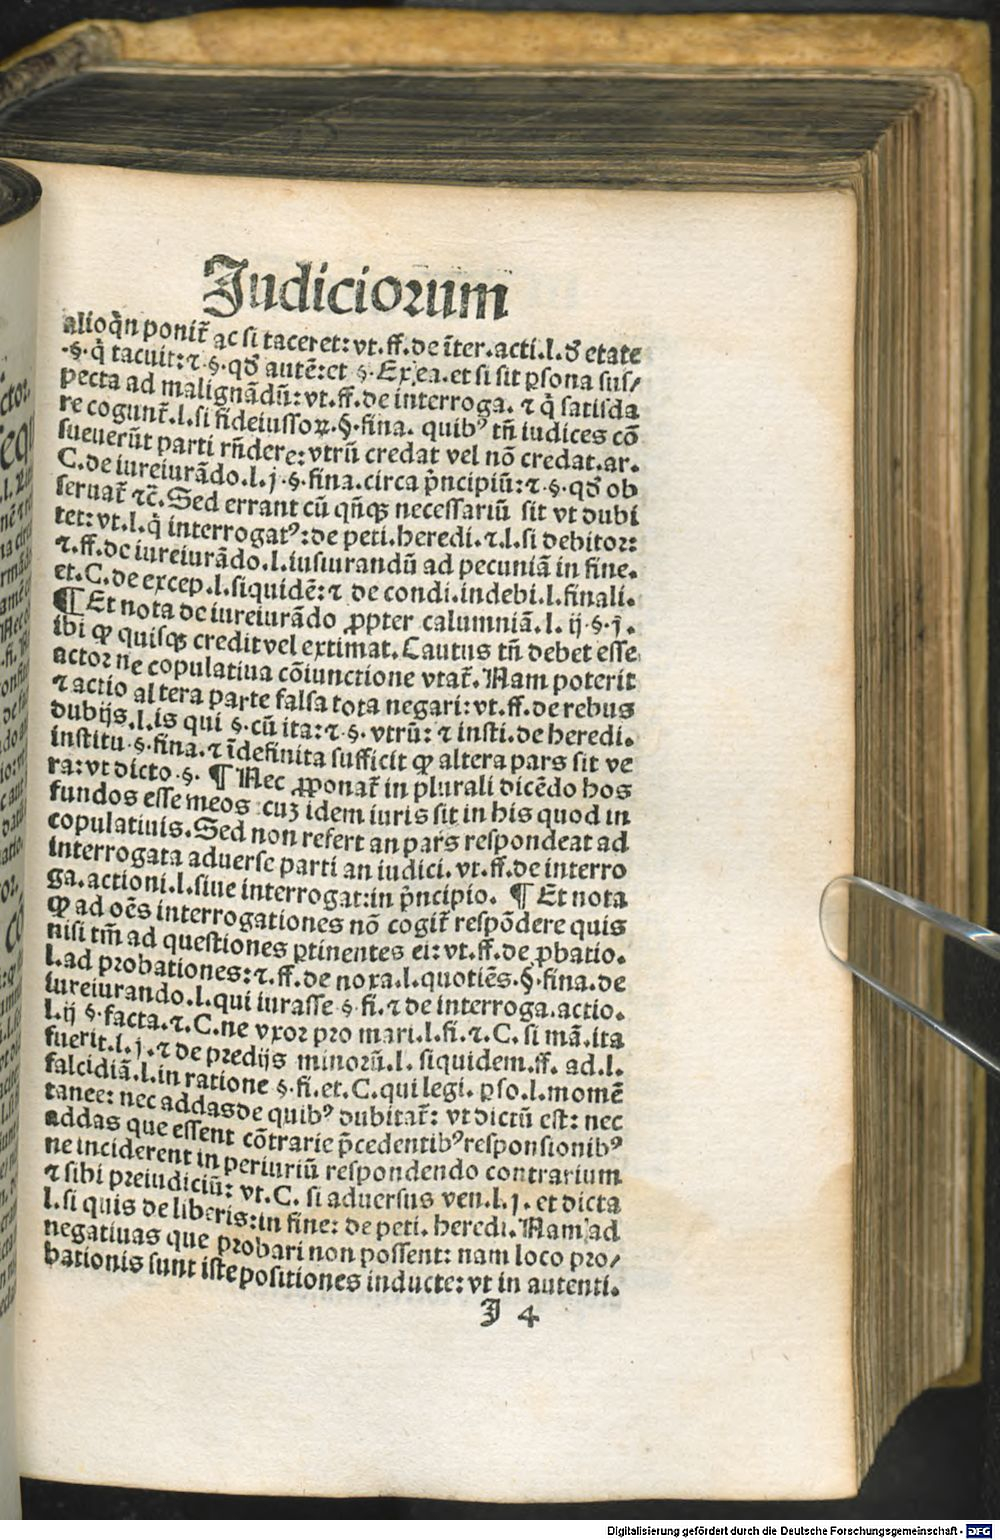 Judiciorum
alioq̃n ponit̃ ac si taceret: vt.ff.de ĩter.acti.l.ð etate
.§.q̃ tacuit:⁊.§.qð autẽ:et §.Ex ea.et si sit ꝑsona sus/
pecta ad malignãdũ: vt.ff.de interroga. ⁊ q̃ satisda
re cogunt̃.l.si fideiussoꝝ.§.fina. quibꝰ tñ iudices cõ
sueuerũt parti rñdere: vtrũ credat vel nõ credat.ar.
C.de iureiurãdo.l.j.§.fina.circa p̃ncipiũ:⁊.§.qð ob
seruat̃ ⁊c̃.Sed errant cũ qñqꝫ necessariũ sit vt dubi
tet: vt.l.q̃ interrogatꝰ: de peti.heredi.⁊.l.si debitor:
⁊.ff.de iureiurãdo.l.iusiurandũ ad pecuniã in fine.
et.C.de excep.l.siquidẽ: ⁊ de condi.indebi.l.finali.
¶ Et nota de iureiurãdo ꝓpter calumniã.l.ij.§.j.
ibi ꝙ quisqꝫ credit vel extimat.Cautus tñ debet esse
actor ne copulatiua cõiunctione vtat̃.Nam poterit
⁊ actio altera parte falsa tota negari: vt.ff.de rebus
dubijs.l.is qui §.cũ ita:⁊.§. vtrũ: ⁊ insti.de heredi.
institu.§.fina.⁊ ĩdefinita sufficit ꝙ altera pars sit ve
ra: vt dicto.§. ¶ Nec ꝓponat̃ in plurali dicẽdo hos
fundos esse meos cuꝫ idem iuris sit in his quod in
copulatiuis.Sed non refert an pars respondeat ad
interrogata aduerse parti an iudici. vt.ff.de interro
ga.actioni.l.siue interrogat:in p̃ncipio. ¶ Et nota
ꝙ ad oẽs interrogationes nõ cogit̃ respõdere quis
nisi tm̃ ad questiones ꝑtinentes ei: vt.ff.de ꝓbatio.
l.ad probationes:⁊.ff.de noxa.l.quotiẽs.§.fina.de
iureiurando.l.qui iurasse §.fi.⁊ de interroga.actio.
l.ij §.facta.⁊.C.ne vxor pro mari.l.fi.⁊.C. si mã.ita
fuerit.l.j.⁊ de predijs minorũ.l. siquidem.ff. ad.l.
falcidiã.l.in ratione §.fi.et.C.qui legi. ꝑso.l.momẽ
tanee: nec addas de quibꝰ dubitat̃: vt dictũ est: nec
addas que essent cõtrarie p̃cedentibꝰ responsionibꝰ
ne inciderent in periuriũ respondendo contrarium
⁊ sibi preiudiciũ: vt.C. si aduersus ven.l.j. et dicta
l.si quis de liberis:in fine: de peti. heredi.Nam ad
negatiuas que probari non possent: nam loco pro/
bationis sunt iste positiones inducte: vt in autenti.
J 4
Digitalisierung gefördert durch die Deutsche Forschungsgemeinschaft - DFG